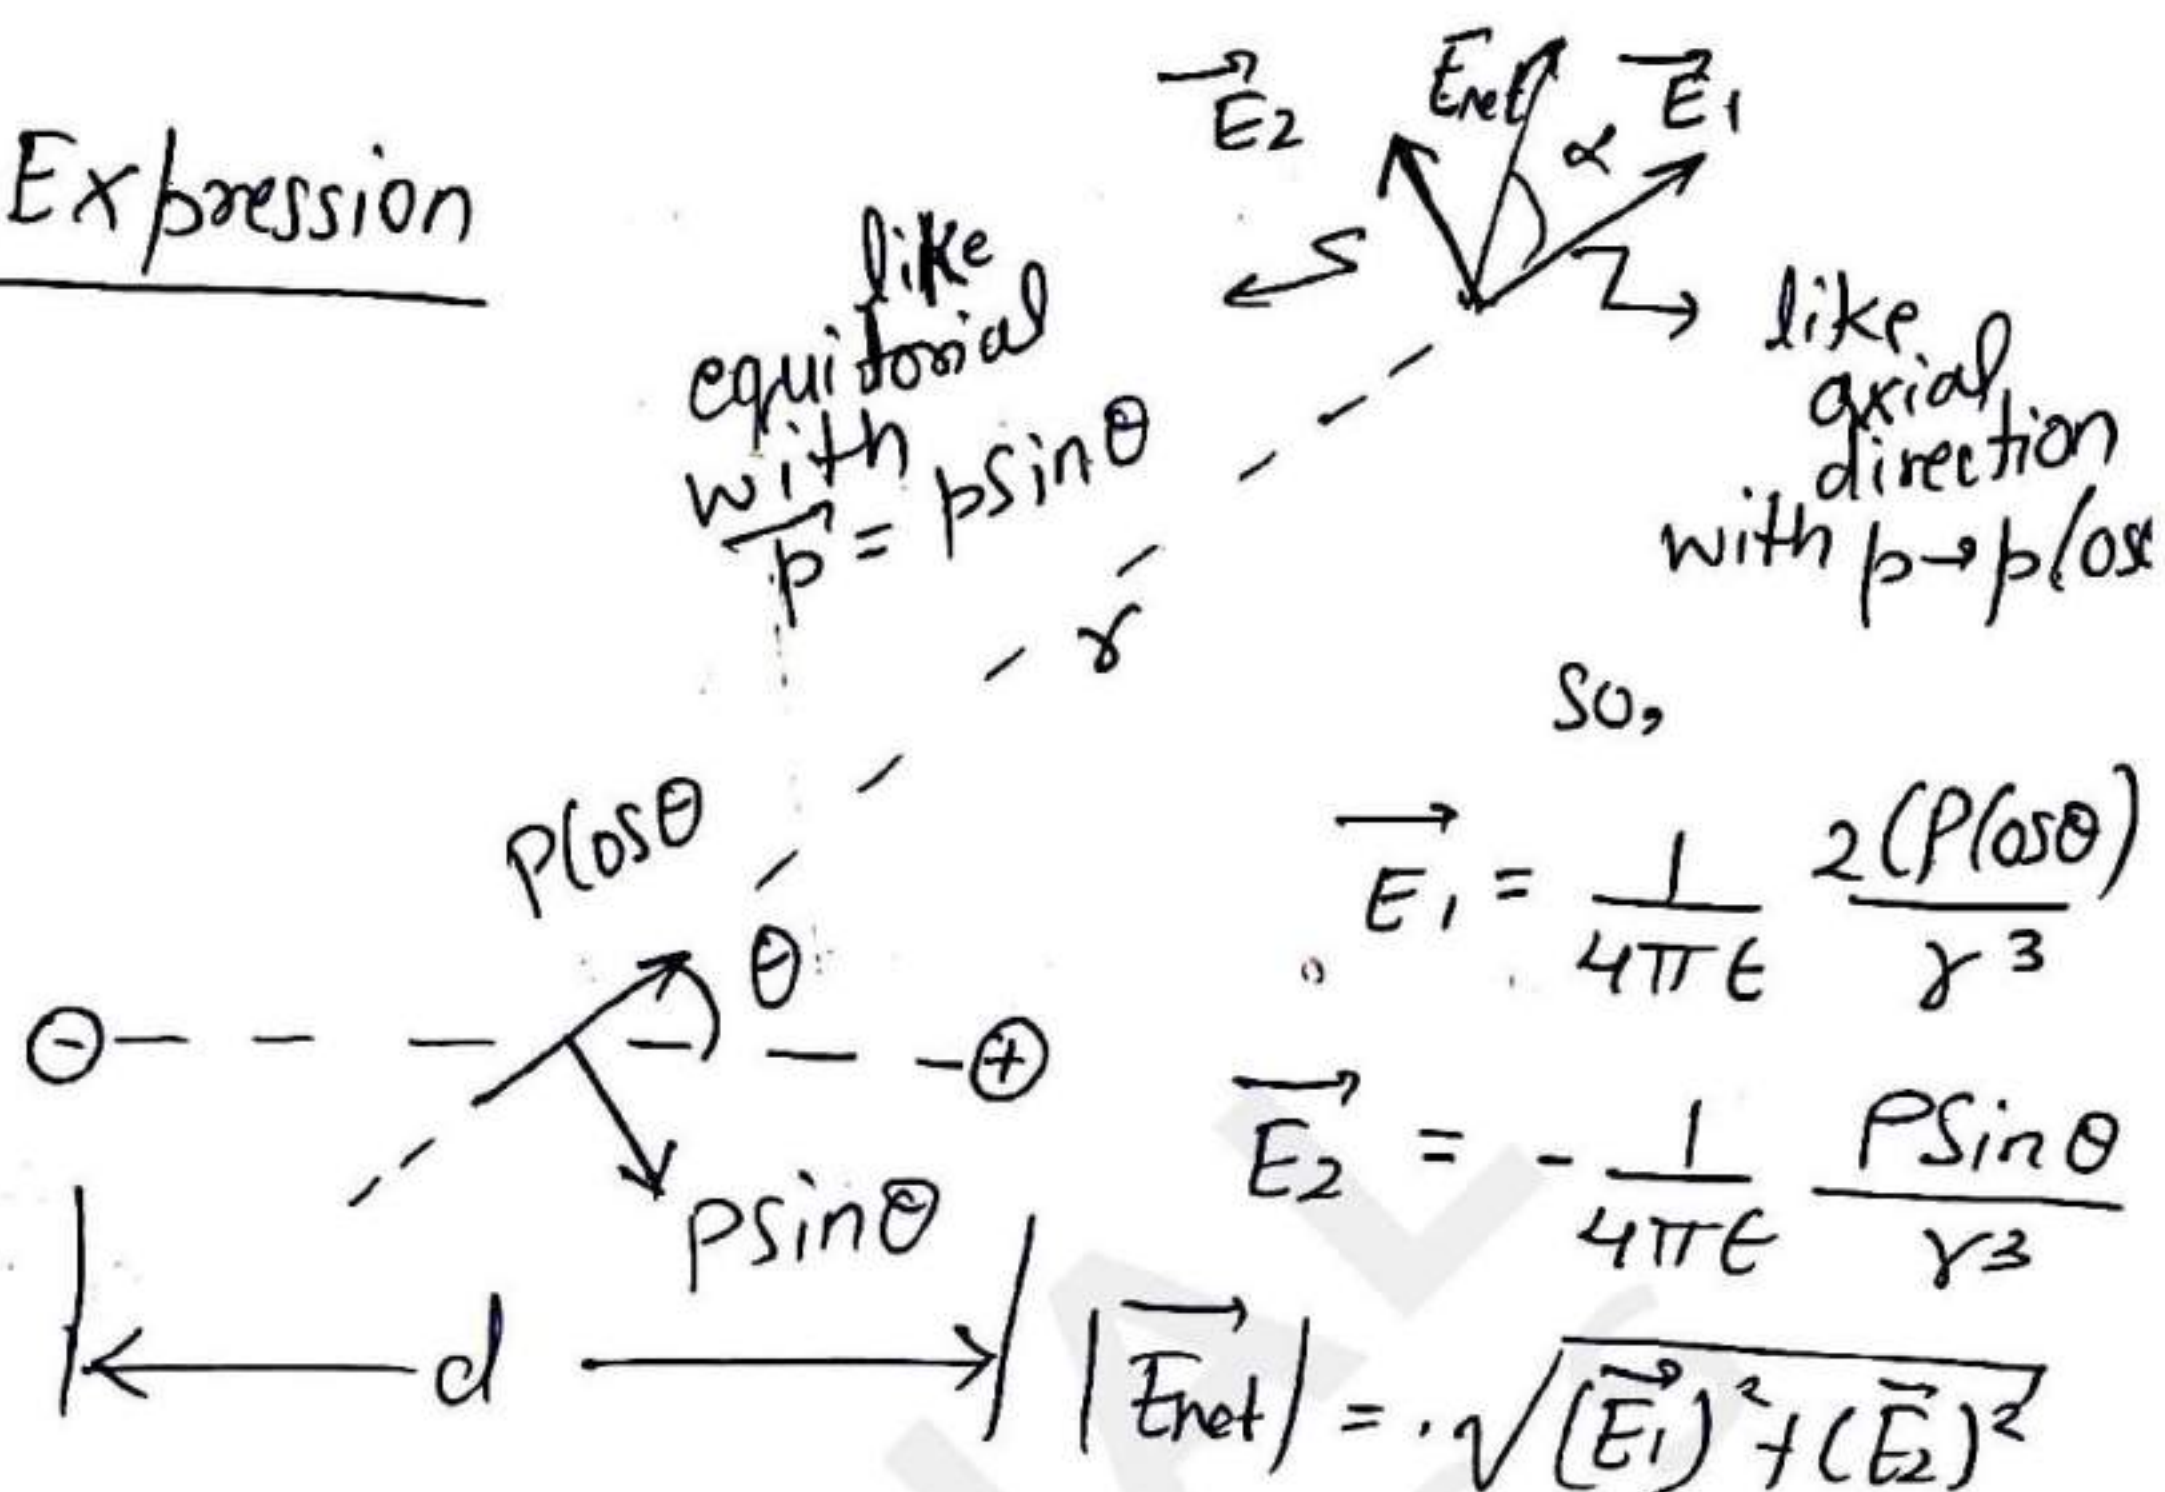 Expression
E⃗2
E⃗net
E⃗1
α
like
equitorial
with
p⃗ = psinθ
like
axial
direction
with p→pcos
r
so,
Pcosθ
θ
psinθ
⊖
⊕
d
E⃗1 = 1/4πε 2(Pcosθ)/r³
E⃗2 = - 1/4πε PSinθ/r³
|E⃗net| = √(E⃗1)²+(E⃗2)²